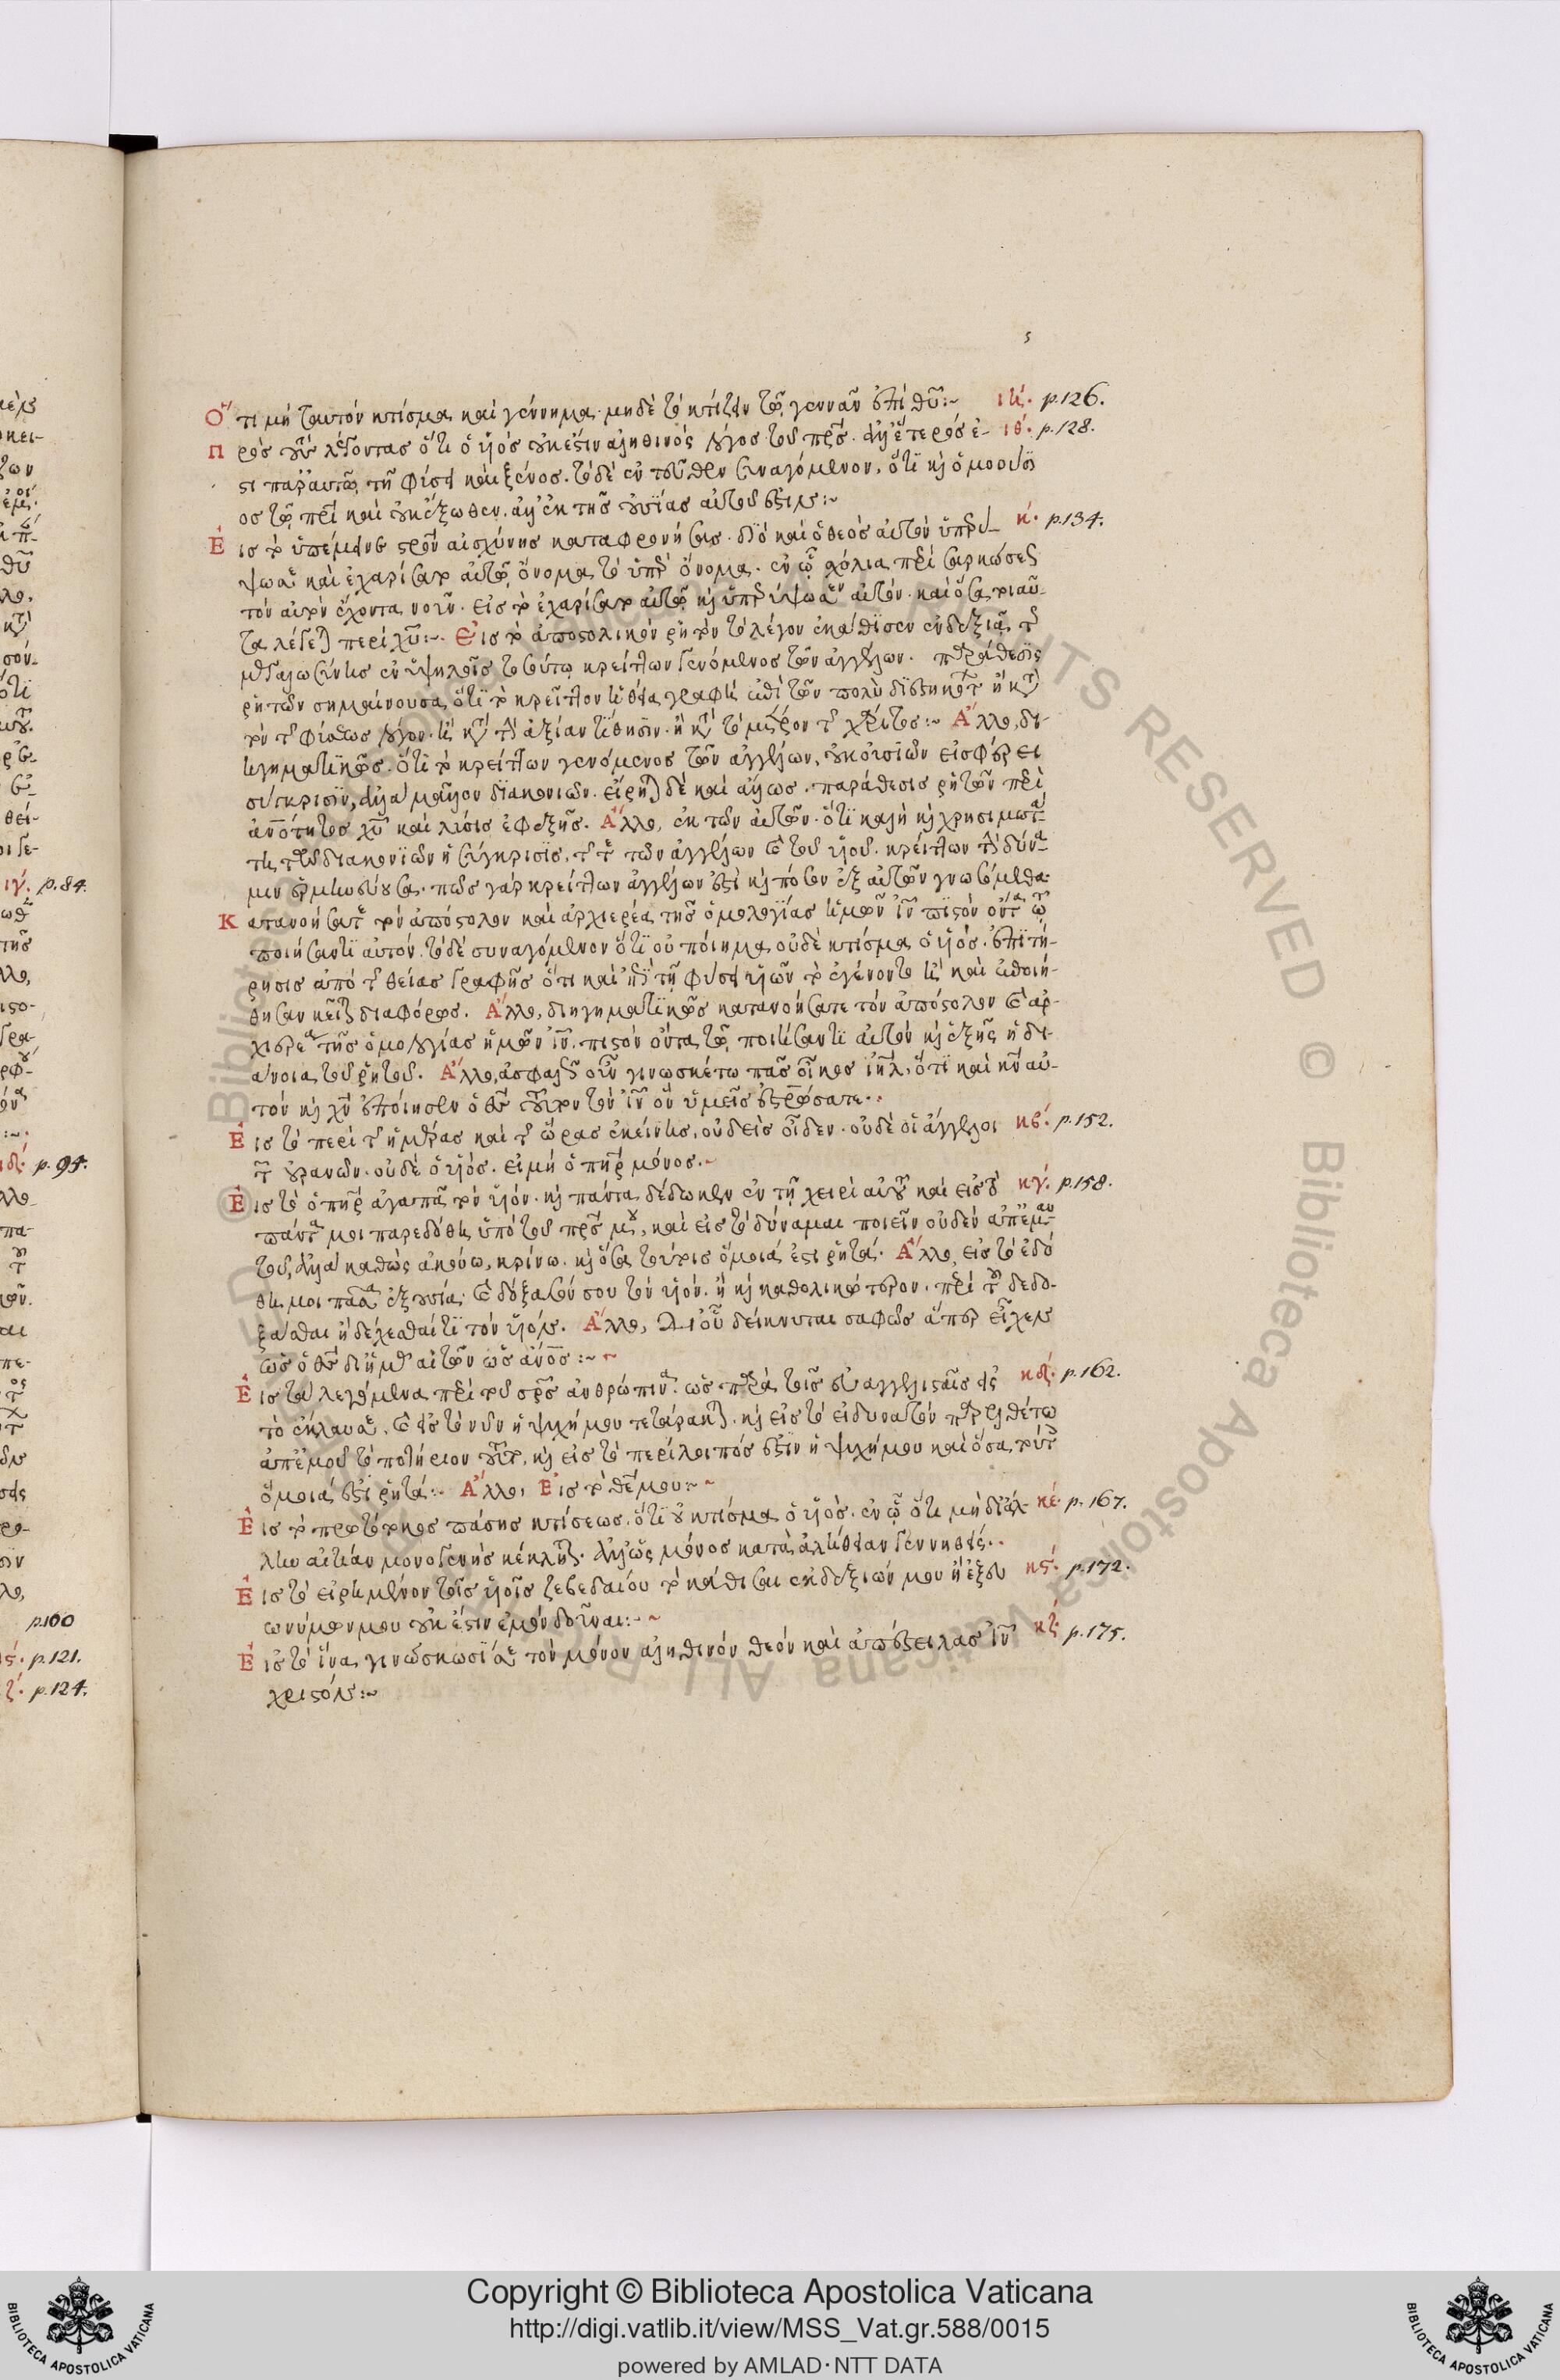 Ὅτι μὴ ταυτόν κτίσμα καὶ γέννημα. μηδὲ τὸ κτίζειν τῷ γεννᾶν ἐπὶ θυ:~ ιη. p.126.
Πρὸς τοὺς λέγοντας ὅτι ὁ υἱὸς οὐκ ἔστιν ἀληθινὸς λόγος τοῦ πρς. ἀλλ' ἕτερός ἐ- ιθ. p.128.
στι παρ' αὐτὸν τῇ φύσει καὶ ξένος. τὸ δὲ ἐν τούτω συναγόμενον, ὅτι καὶ ὁμοούσι
ος τῷ πρι καὶ οὐκ ἔξωθεν. ἀλλ' ἐκ τῆς οὐσίας αὐτοῦ ἐστιν:~
Εἰς τὸ ὑπέμεινε στρον αἰσχύνης καταφρονήσας. διὸ καὶ ὁ θεὸς αὐτὸν ὑπερύ- κ. p.134.
ψωσε καὶ ἐχαρίσατο αὐτῷ ὄνομα τὸ ὑπὲρ ὄνομα. ἐν ᾧ σχόλια περὶ σαρκώσεως
τὸν αὐτὸν ἔχοντα νοῦν. εἰς τὸ ἐχαρίσατο αὐτῷ καὶ ὑπερύψωσεν αὐτόν. καὶ ὅσα τοιαῦ-
τα λέγεται περὶ χυ:~ Εἰς τὸ ἀποστολικὸν ῥητὸν τὸ λέγον ἐκάθισεν ἐν δεξιᾷ τῆς
μεγαλωσύνης ἐν ὑψηλοῖς τοσούτῳ κρείττων γενόμενος τῶν ἀγγέλων. παράθεσις
ῥητῶν σημαίνουσα, ὅτι τὸ κρεῖττον ἡ θεία γραφὴ ἐπὶ τῶν πολὺ διεστηκότων ἢ κατὰ
τὸν τῆς φύσεως λόγον. ἢ κατὰ τὴν ἀξίαν τίθησιν. ἢ κατὰ τὸ μεῖζον τῆς χάριτος:~ Ἄλλο, δι-
ηγηματικῶς. ὅτι τὸ κρείττων γενόμενος τῶν ἀγγέλων, οὐκ οὐσιῶν εἰσφέρει
σύγκρισιν, ἀλλὰ μᾶλλον διακονιῶν. εἴρηται δὲ καὶ ἄλλως. παράθεσις ῥητῶν περὶ
ἀνότητος χυ καὶ λύσις ἐφεξῆς. Ἄλλο, ἐκ τῶν αὐτῶν. ὅτι καλὴ καὶ χρησιμωτά-
τη, τῶν διακονιῶν ἡ σύγκρισις, τῆς τε τῶν ἀγγέλων καὶ τοῦ υἱοῦ. κρείττων τὴν δύνα-
μιν ἑρμηνεύουσα. πῶς γὰρ κρείττων ἀγγέλων ἐστὶ καὶ πόσον ἐξ αὐτῶν γνωσόμεθα.
Κατανοήσατε τὸν ἀπόστολον καὶ ἀρχιερέα τῆς ὁμολογίας ἡμῶν ιν πιστὸν ὄντα τῷ
ποιήσαντι αὐτόν. τὸ δὲ συναγόμενον ὅτι οὐ ποίημα οὐδὲ κτίσμα ὁ υἱός. ἐπιτή-
ρησις ἀπὸ τῆς θείας γραφῆς ὅτι καὶ ἐπὶ τῇ φύσει υἱῶν τὸ ἐγένοντο ἢ καὶ ἐποιή-
θησαν κεῖται διαφόρως. Ἄλλο, διηγηματικῶς κατανοήσατε τὸν ἀπόστολον καὶ ἀρ-
χιερέα τῆς ὁμολογίας ἡμῶν ιν. πιστὸν ὄντα τῷ ποιήσαντι αὐτόν καὶ ἑξῆς ἡ δι-
άνοια τοῦ ῥητοῦ. Ἄλλο, ἀσφαλῶς οὖν γινωσκέτω πᾶς οἶκος ιηλ, ὅτι καὶ κν αὐ-
τὸν καὶ χν ἐποίησεν ὁ θς τοῦτον τὸν ιν ὃν ὑμεῖς ἐστρώσατε.
Εἰς τὸ περὶ τῆς ἡμέρας καὶ τῆς ὥρας ἐκείνης, οὐδεὶς οἶδεν. οὐδὲ οἱ ἄγγελοι κβ. p.152.
τῶν οὐρανῶν. οὐδὲ ὁ υἱός. εἰ μὴ ὁ πηρ μόνος.~
Εἰς τὸ ὁ πηρ ἀγαπᾷ τὸν υἱόν. καὶ πάντα δέδωκεν ἐν τῇ χειρὶ αὐτοῦ καὶ εἰς τὸ κγ. p.158.
πάντα μοι παρεδόθη ὑπὸ τοῦ πρς μου, καὶ εἰς τὸ δύναμαι ποιεῖν οὐδὲν ἀπ' ἐμαυ-
τοῦ, ἀλλὰ καθὼς ἀκούω, κρίνω. καὶ ὅσα τούτοις ὅμοιά ἐστι ῥητά. Ἄλλο, εἰς τὸ ἐδό
θη μοι πᾶσα ἐξουσία, καὶ δόξασόν σου τὸν υἱόν. ἢ καὶ καθολικώτερον. περὶ τοῦ δεδο-
ξάσθαι ἢ δέχεσθαί τι τὸν υἱόν. Ἄλλο, δι' οὗ δείκνυται σαφῶς ἅπερ εἶχεν
ὡς ὁ θς δι' ἡμᾶς αἰτῶν ὡς ανος:~ ~
Εἰς τὰ λεγόμενα περὶ τοῦ σρς ἀνθρώπινα. ὡς παρὰ τοῖς εὐαγγελισταῖς εἰς κδ. p.162.
τὸ ἔκλαυσε. καὶ εἰς τὸ νῦν ἡ ψυχή μου τετάρακται. καὶ εἰς τὸ εἰ δυνατὸν παρελθέτω
ἀπ' ἐμοῦ τὸ ποτήριον τοῦτο, καὶ εἰς τὸ περίλυπός ἐστιν ἡ ψυχή μου καὶ ὅσα τούτοις
ὅμοιά ἐστι ῥητά:~ Ἄλλο, Εἰς τὸ θε μου:~ ~
Εἰς τὸ πρωτότοκος πάσης κτίσεως. ὅτι οὐ κτίσμα ὁ υἱός. ἐν ᾧ ὅτι μὴ δι' ἄλ- κε. p.167.
λην αἰτίαν μονογενὴς κέκληται. ἀλλ' ὡς μόνος κατὰ ἀλήθειαν γεννηθείς.
Εἰς τὸ εἰρημένον τοῖς υἱοῖς ζεβεδαίου τὸ καθίσαι ἐκ δεξιῶν μου ἢ ἐξ εὐ κς. p.172.
ωνύμων μου οὐκ ἔστιν ἐμὸν δοῦναι:~ ~
Εἰς τὸ ἵνα γινώσκωσί σε τὸν μόνον ἀληθινὸν θεὸν καὶ ὃν ἀπέστειλας ιν κζ p.175.
χριστόν:~
p. 84.
p. 94.
p.100
p.121.
p.124.
Copyright © Biblioteca Apostolica Vaticana
http://digi.vatlib.it/view/MSS_Vat.gr.588/0015
powered by AMLAD·NTT DATA
BIBLIOTECA APOSTOLICA VATICANA
BIBLIOTECA APOSTOLICA VATICANA